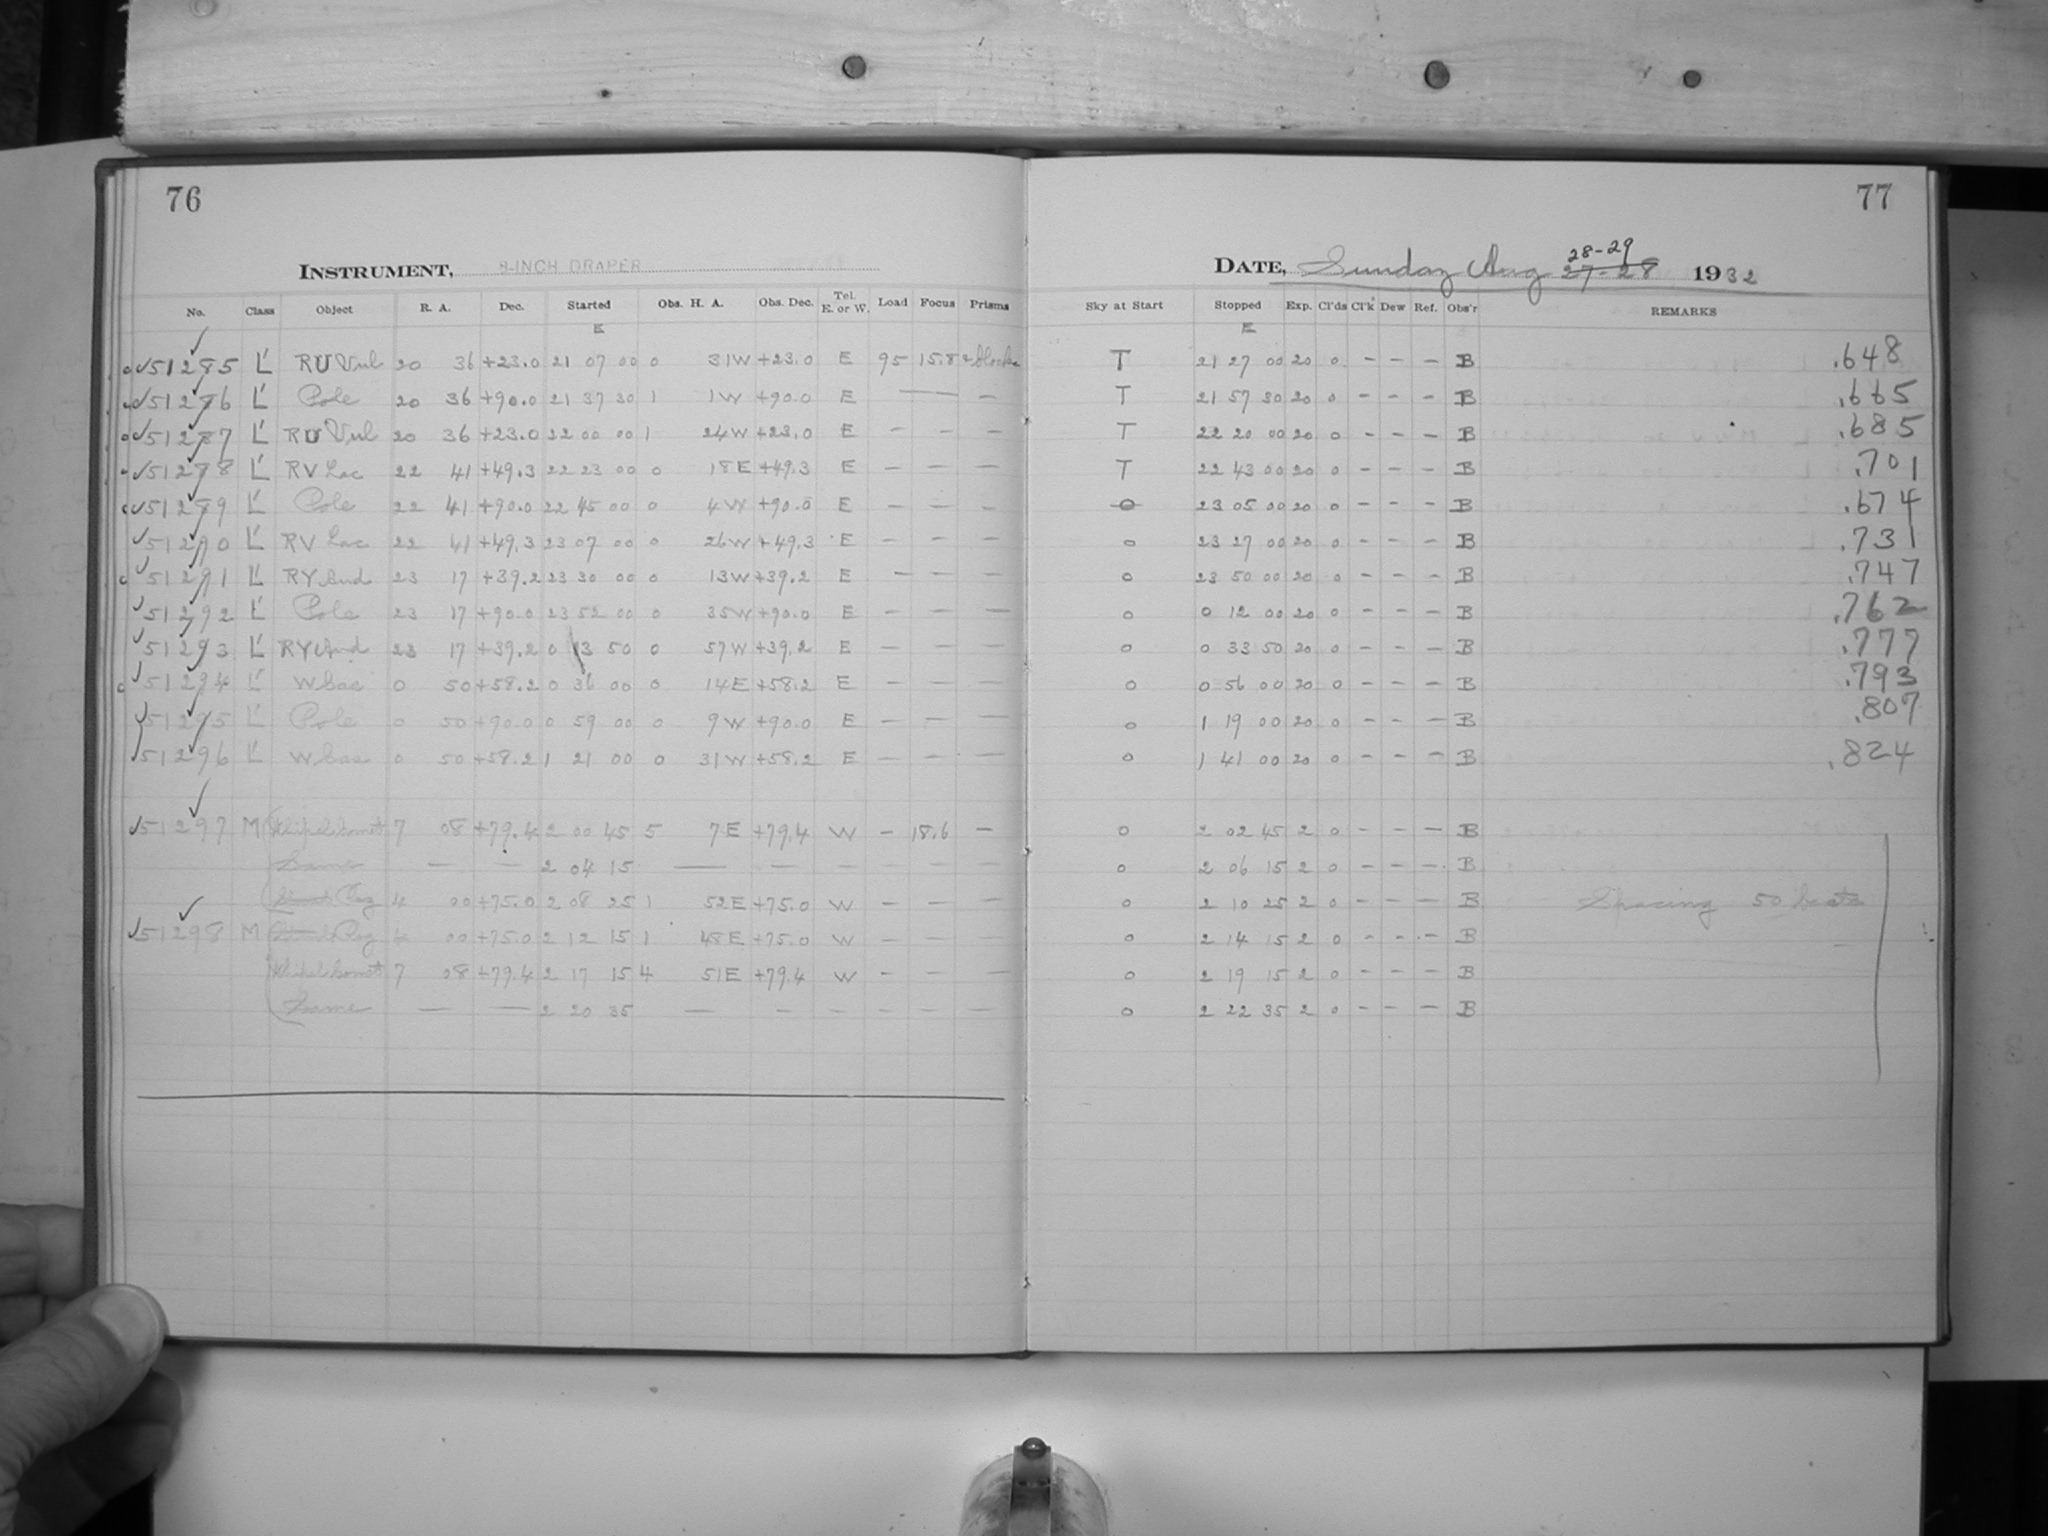 76
INSTRUMENT, 8-INCH DRAPER
No. Class Object R. A. Dec. Started Obs. H. A. Obs. Dec. Tel. E. or W. Load Focus Prisms
E
51285 L' RU Vul 20 36 +23.0 21 07 00 0 31W +23.0 E 95 15.8
51286 L' Pole 20 36 +90.0 21 37 30 1 1W +90.0 E — —
51287 L' RU Vul 20 36 +23.0 22 00 00 1 24W +23.0 E — — —
51288 L' RV Lac 22 41 +49.3 22 23 00 0 18E +49.3 E — — —
51289 L' Pole 22 41 +90.0 22 45 00 0 4W +90.0 E — — —
51290 L' RV Lac 22 41 +49.3 23 07 00 0 26W +49.3 E — — —
51291 L' RY And 23 17 +39.2 23 30 00 0 13W +39.2 E — — —
51292 L' Pole 23 17 +90.0 23 52 00 0 35W +90.0 E — — —
51293 L' RY And 23 17 +39.2 0 13 50 0 57W +39.2 E — — —
51294 L' W Cas 0 50 +58.2 0 36 00 0 14E +58.2 E — — —
51295 L' Pole 0 50 +90.0 0 59 00 0 9W +90.0 E — — —
51296 L' W Cas 0 50 +58.2 1 21 00 0 31W +58.2 E — — —
51297 M 7 08 +79.4 2 00 45 5 7E +79.4 W — 18.6 —
Same — — 2 04 15 — — — — — —
Reg 4 00 +75.0 2 08 25 1 52E +75.0 W — — —
51298 M Reg 4 00 +75.0 2 12 15 1 48E +75.0 W — — —
7 08 +79.4 2 17 15 4 51E +79.4 W — — —
Same — — 2 20 35 — — — — — —
77
28-29
DATE, Sunday Aug 27-28 1932
Sky at Start Stopped Exp. Cl'ds Cl'k Dew Ref. Obs'r REMARKS
E
T 21 27 00 20 0 - - - B .648
T 21 57 30 20 0 - - - B .665
T 22 20 00 20 0 - - - B .685
T 22 43 00 20 0 - - - B .701
0 23 05 00 20 0 - - - B .674
0 23 27 00 20 0 - - - B .731
0 23 50 00 20 0 - - - B .747
0 0 12 00 20 0 - - - B .762
0 0 33 50 20 0 - - - B .777
0 0 56 00 20 0 - - - B .793
0 1 19 00 20 0 - - - B .807
0 1 41 00 20 0 - - - B .824
0 2 02 45 2 0 - - - B
0 2 06 15 2 0 - - - B
0 2 10 25 2 0 - - - B Spacing 50 beats
0 2 14 15 2 0 - - - B
0 2 19 15 2 0 - - - B
0 2 22 35 2 0 - - - B